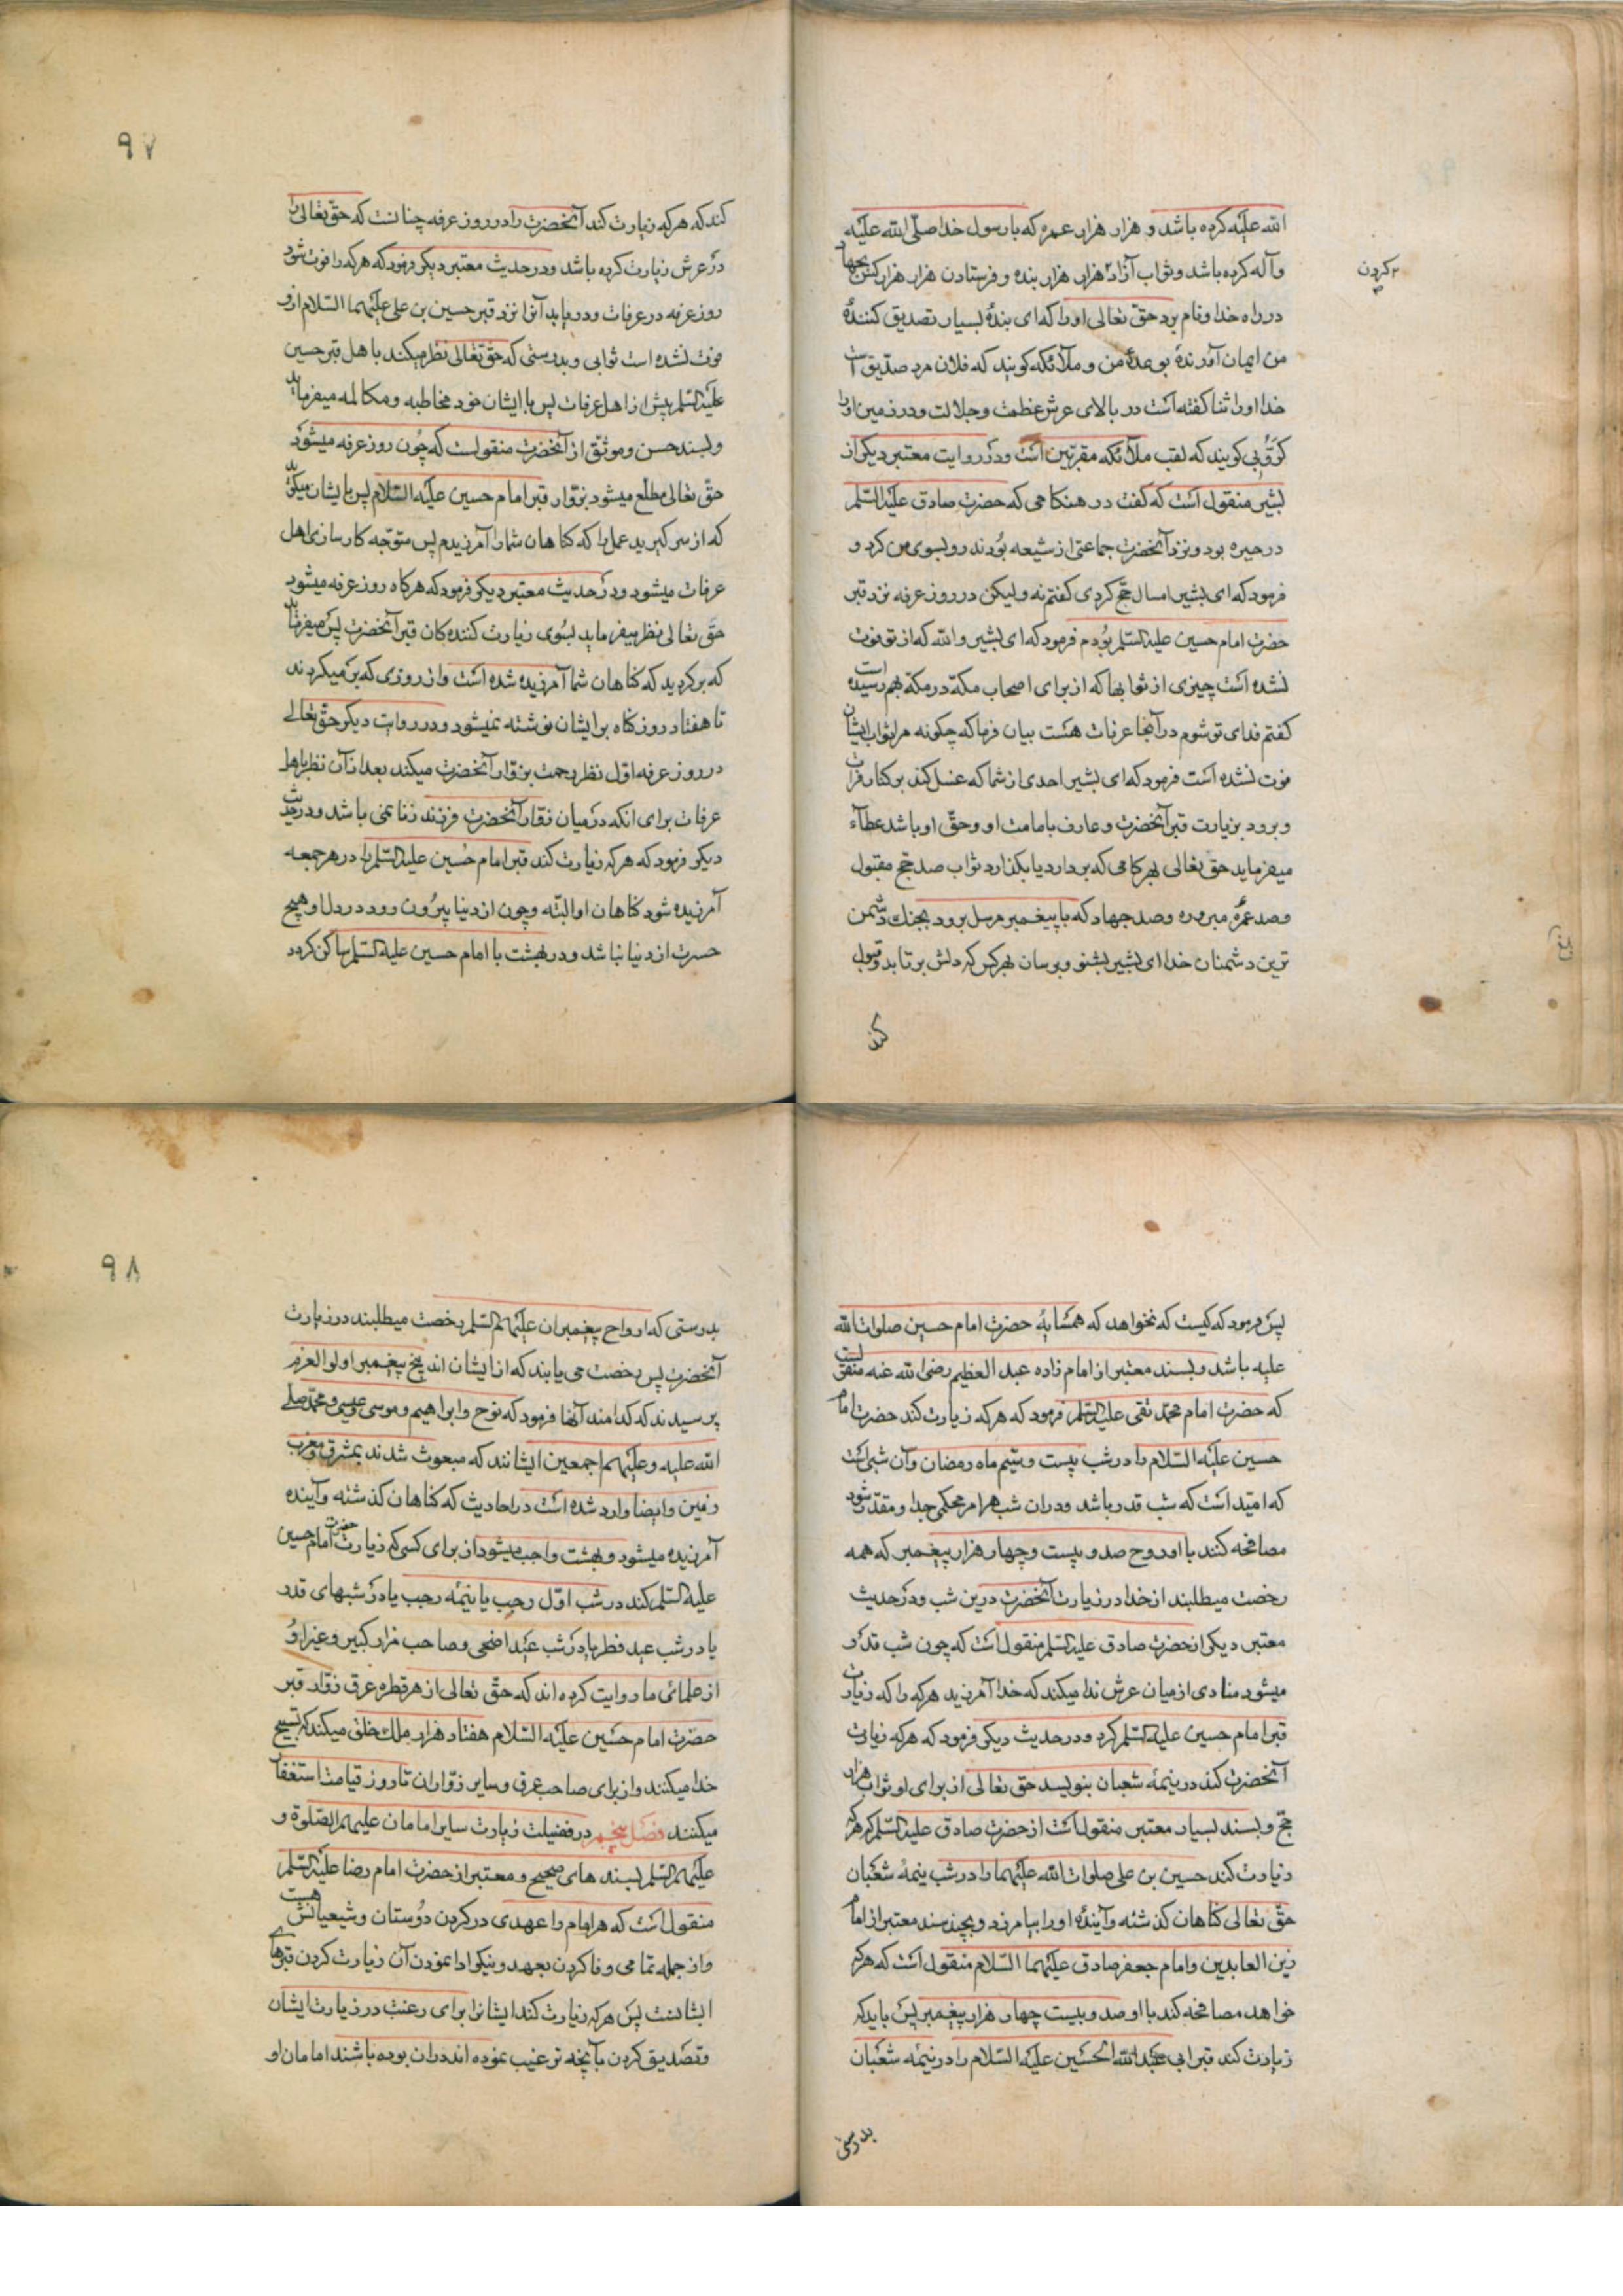 الله علیه کرده باشد و هزار هزار عمره که با رسول خدا صلّی الله علیه
و آله کرده باشد و ثواب آزاد هزار هزار بنده و فرستادن هزار هزار کس بجهاد
کردن
در راه خدا و نام برد حق تعالی او را که ای بندهٔ بسیار تصدیق کنندهٔ
من ایمان آورندهٔ بوعدهٔ من و ملآئکه کویند که فلان مرد صدّیق است
خدا او را ثنا کفته است در بالای عرش عظمت و جلالت و در زمین او را
کرّوبی کویند که لقب ملآئکه مقرّبین است و در روایت معتبر دیکر از
بشیر منقول است که کفت در هنکامی که حضرت صادق علیه السّلم
در حیره بود و نزد آنحضرت جماعتی از شیعه بودند رو بسوی من کرد و
فرمود که ای بشیر امسال حجّ کردی کفتم نه ولیکن در روز عرفه نزد قبر
حضرت امام حسین علیه السّلم بودم فرمود که ای بشیر والله که از تو فوت
نشده است چیزی از ثوابها که از برای اصحاب مکّه در مکّه بهم رسیده است
کفتم فدای تو شوم در آنجا عرفات هست بیان فرما که چکونه مرا ثواب ایشان
فوت نشده است فرمود که ای بشیر احدی از شما که غسل کند بر کنار فرات
و برود بزیارت قبر آنحضرت و عارف بامامت او و حقّ او باشد عطآء
میفرماید حق تعالی بهر کامی که بردارد یا بکذارد ثواب صد حجّ مقبول
و صد عمرهٔ مبروره و صد جهاد که با پیغمبر مرسل برود بجنك دشمن
ترین دشمنان خدا ای بشیر بشنو و برسان بهر کس که دلش بر تابد و قبول
کند
۹۷
کند که هر که زیارت کند آنحضرت را در روز عرفه چنانست که حقّ تعالی را
در عرش زیارت کرده باشد و در حدیث معتبر دیکر فرمود که هر که را فوت شود
روز عرفه در عرفات و دریابد آنرا نزد قبر حسین بن علی علیهما السّلام از او
فوت نشده است ثوابی و بدرستی که حقّ تعالی نظر میکند باهل قبر حسین
علیه السّلم پیش از اهل عرفات پس با ایشان خود مخاطبه و مکالمه میفرماید
و بسند حسن و موثّق از آنحضرت منقولست که چون روز عرفه میشود
حقّ تعالی مطلع میشود بزوّار قبر امام حسین علیه السّلام پس با ایشان میکوید
که از سر کیرید عمل را که کناهان شما را آمرزیدم پس متوّجه کارسازی اهل
عرفات میشود و در حدیث معتبر دیکر فرمود که هر کاه روز عرفه میشود
حقّ تعالی نظر میفرماید بسوی زیارت کننده کان قبر آنحضرت پس میفرماید
که برکردید که کناهان شما آمرزیده شده است و از روزی که بر میکردند
تا هفتاد روز کناه بر ایشان نوشته نمیشود و در روایت دیکر حقّ تعالی
در روز عرفه اوّل نظر رحمت بزوّار آنحضرت میکند بعد از آن نظر باهل
عرفات برای انکه در میان زوّار آنحضرت فرزند زنا نمی باشد و در حدیث
دیکر فرمود که هر که زیارت کند قبر امام حسین علیه السّلم را در هر جمعه
آمرزیده شود کناهان او البتّه و چون از دنیا بیرون رود در دل او هیچ
حسرت از دنیا نباشد و در بهشت با امام حسین علیه السّلم ساکن کردد
پس فرمود که کیست که نخواهد که همسایهٔ حضرت امام حسین صلوات الله
علیه باشد و بسند معتبر از امام زاده عبد العظیم رضی الله عنه منقولست
که حضرت امام محمّد تقی علیه السّلم فرمود که هر که زیارت کند حضرت امام
حسین علیه السّلام را در شب بیست و سیّم ماه رمضان و آن شبی است
که امّید است که شب قدر باشد و دران شب هر امر محکمی جدا و مقدّر میشود
مصافحه کنند با او روح صد و بیست و چهار هزار پیغمبر که همه
رخصت میطلبند از خدا در زیارت آنحضرت درین شب و در حدیث
معتبر دیکر از حضرت صادق علیه السّلم منقول است که چون شب قدر
میشود منادی از میان عرش ندا میکند که خدا آمرزید هر که را که زیارت
قبر امام حسین علیه السّلم کرد و در حدیث دیکر فرمود که هر که زیارت
آنحضرت کند در نیمهٔ شعبان بنویسد حق تعالی از برای او ثواب هزار
حجّ و بسند بسیار معتبر منقول است از حضرت صادق علیه السّلم که هر که
زیارت کند حسین بن علی صلوات الله علیهما را در شب نیمهٔ شعبان
حقّ تعالی کناهان کذشته و آیندهٔ او را بیامرزد و بچند سند معتبر از امام
زین العابدین و امام جعفر صادق علیهما السّلام منقول است که هر که
خواهد مصافحه کند با او صد و بیست چهار هزار پیغمبر پس باید که
زیارت کند قبر ابی عبد الله الحسین علیه السّلام را در نیمه شعبان
بدرستی
۹۸
بدرستی که ارواح پیغمبران علیهم السّلم رخصت میطلبند در زیارت
آنحضرت پس رخصت می یابند که از ایشان اند پنج پیغمبر اولو العزم
پرسیدند که کدامند آنها فرمود که نوح و ابراهیم و موسی و عیسی و محمّد صلی
الله علیه و علیهم اجمعین ایشانند که مبعوث شدند بمشرق و مغرب
زمین و ایضا وارد شده است در احادیث که کناهان کذشته و آینده
آمرزیده میشود و بهشت واجب میشود از برای کسی که زیارت حضرت امام حسین
علیه السّلم کند در شب اوّل رجب یا نیمهٔ رجب یا در شبهای قدر
یا در شب عید فطر یا در شب عید اضحی و صاحب مزار کبیر و غیر او
از علمائی ما روایت کرده اند که حقّ تعالی از هر قطره عرق زوّار قبر
حضرت امام حسین علیه السّلام هفتاد هزار ملك خلق میکند که تسبیح
خدا میکنند و از برای صاحب عرق و سایر زوّاران تا روز قیامت استغفار
میکنند فصل پنجم در فضیلت زیارت سایر امامان علیهم الصّلوة و
علیهم السّلم بسند های صحیح و معتبر از حضرت امام رضا علیه السّلم
منقول است که هر امام را عهدی در کردن دوستان و شیعیانش هست
و از جمله تمامی وفا کردن بعهد و نیکو ادا نمودن آن زیارت کردن قبرهای
ایشانست پس هر که زیارت کند ایشانرا برای رغبت در زیارت ایشان
و تصدیق کردن بآنچه ترغیب نموده اند دران بوده باشند امامان او